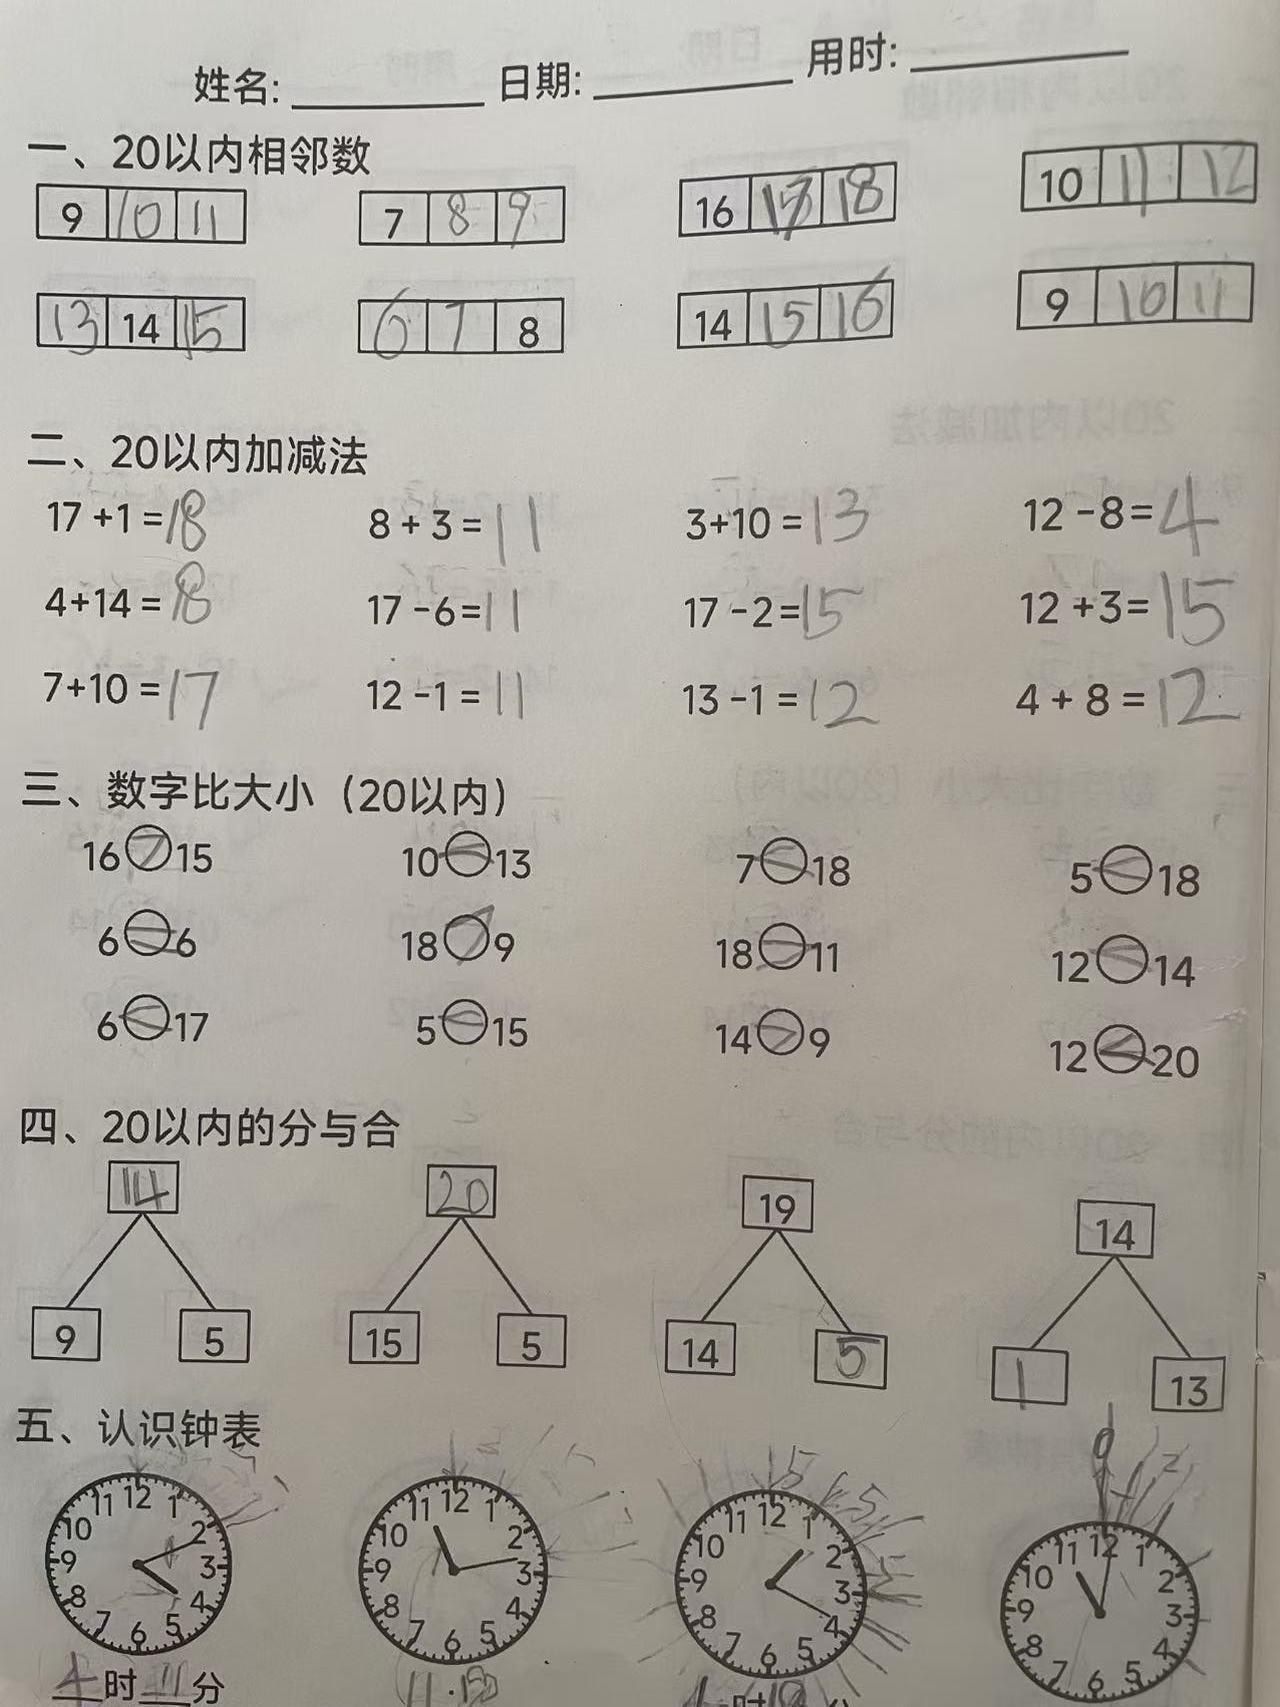 姓名: 日期: 用时:
一、20以内相邻数
9 10 11 7 8 9 16 17 18 10 11 12
13 14 15 6 7 8 14 15 16 9 10 11
二、20以内加减法
17+1=18 8+3=11 3+10=13 12-8=4
4+14=18 17-6=11 17-2=15 12+3=15
7+10=17 12-1=11 13-1=12 4+8=12
三、数字比大小（20以内）
16>15 10<13 7<18 5<18
6=6 18>9 18>11 12<14
6<17 5<15 14>9 12<20
四、20以内的分与合
14 20 19 14
9 5 15 5 14 5 1 13
五、认识钟表
12 1 2 3 4 5 6 7 8 9 10 11
12 1 2 3 4 5 6 7 8 9 10 11
12 1 2 3 4 5 6 7 8 9 10 11
12 1 2 3 4 5 6 7 8 9 10 11
4时11分 11. 时